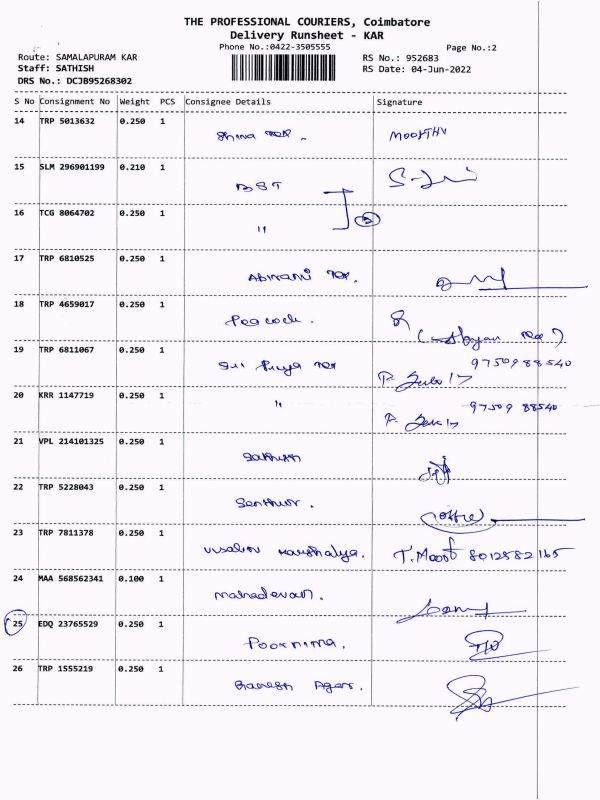 THE PROFESSIONAL COURIERS, Coimbatore
Delivery Runsheet - KAR
Phone No.:0422-3505555 Page No.:2
Route: SAMALAPURAM KAR RS No.: 952683
Staff: SATHISH RS Date: 04-Jun-2022
DRS No.: DCJB95268302
S No Consignment No Weight PCS Consignee Details Signature
14 TRP 5013632 0.250 1
Shiva Tex. MOORTHY
15 SLM 296901199 0.210 1
BST
16 TCG 8064702 0.250 1 2
"
17 TRP 6810525 0.250 1
Abirami Tex.
18 TRP 4659017 0.250 1
Peacock.
19 TRP 6811067 0.250 1
Sri Priya Tex 9750988540
20 KRR 1147719 0.250 1
" 97509 88540
21 VPL 214101325 0.250 1
Sathish
22 TRP 5228043 0.250 1
Senthur. (office)
23 TRP 7811378 0.250 1
Kaushalya. 8012582165
24 MAA 568562341 0.100 1
Mahadevan.
25 EDQ 23765529 0.250 1
Poornima.
26 TRP 1555219 0.250 1
Ganesh Agen.